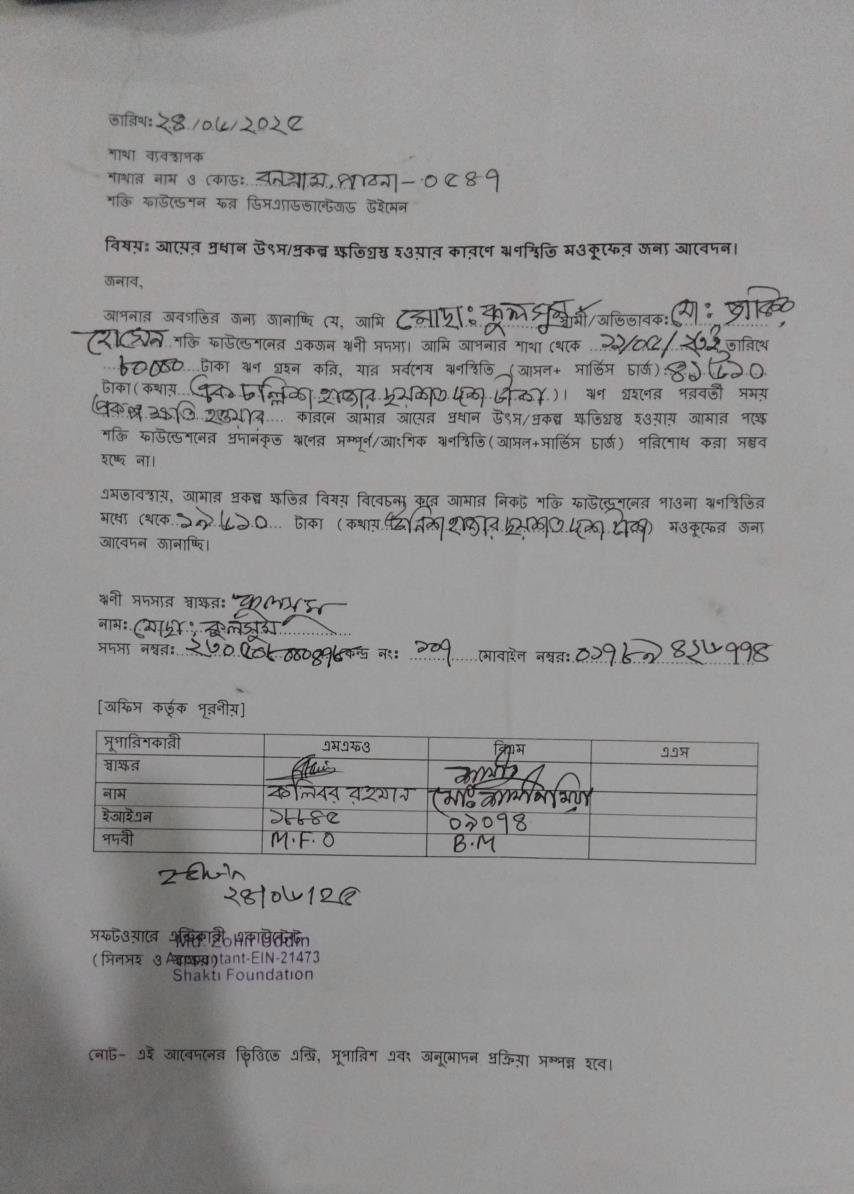 তারিখ: ২৪/০৬/২০২৫
শাখা ব্যবস্থাপক
শাখার নাম ও কোড: বনগ্রাম, পাবনা-০৫৪৭
শক্তি ফাউন্ডেশন ফর ডিসএ্যাডভান্টেজড উইমেন
বিষয়: আয়ের প্রধান উৎস/প্রকল্প ক্ষতিগ্রস্ত হওয়ার কারণে ঋণস্থিতি মওকুফের জন্য আবেদন।
জনাব,
আপনার অবগতির জন্য জানাচ্ছি যে, আমি মোছা: কুলসুম স্বামী/অভিভাবক: মো:
হোসেন শক্তি ফাউন্ডেশনের একজন ঋণী সদস্য। আমি আপনার শাখা থেকে তারিখে
৮০০০০ টাকা ঋণ গ্রহন করি, যার সর্বশেষ ঋণস্থিতি (আসল+ সার্ভিস চার্জ) ৪১৬১০
টাকা(কথায় একচল্লিশ হাজার ছয়শত দশ টাকা)। ঋণ গ্রহণের পরবর্তী সময়
প্রকল্প ক্ষতি হওয়ার কারনে আমার আয়ের প্রধান উৎস/প্রকল্প ক্ষতিগ্রস্ত হওয়ায় আমার পক্ষে
শক্তি ফাউন্ডেশনের প্রদানকৃত ঋণের সম্পূর্ণ/আংশিক ঋণস্থিতি(আসল+সার্ভিস চার্জ) পরিশোধ করা সম্ভব
হচ্ছে না।
এমতাবস্থায়, আমার প্রকল্প ক্ষতির বিষয় বিবেচনা করে আমার নিকট শক্তি ফাউন্ডেশনের পাওনা ঋণস্থিতির
মধ্যে থেকে ১৯৬১০ টাকা (কথায় উনিশ হাজার ছয়শত দশ টাকা) মওকুফের জন্য
আবেদন জানাচ্ছি।
ঋণী সদস্যর স্বাক্ষর: কুলসুম
নাম: মোছা: কুলসুম
সদস্য নম্বর: কেন্দ্র নং: ১০৭ মোবাইল নম্বর: ০১৭৮৯৪২৬৭৭৪
[অফিস কর্তৃক পূরণীয়]
সুপারিশকারী এমএফও বিএম এএস
স্বাক্ষর
নাম কলিবর রহমান মোঃ
ইআইএন ১৮৮৪৫ ০৯০৭৪
পদবী M.F.O B.M
২৪/০৬/২৫
সফটওয়ারে এন্ট্রিকারী একাউন্টেন্ট
(সিলসহ ও স্বাক্ষর) Accountant-EIN-21473
Shakti Foundation
নোট- এই আবেদনের ভিত্তিতে এন্ট্রি, সুপারিশ এবং অনুমোদন প্রক্রিয়া সম্পন্ন হবে।